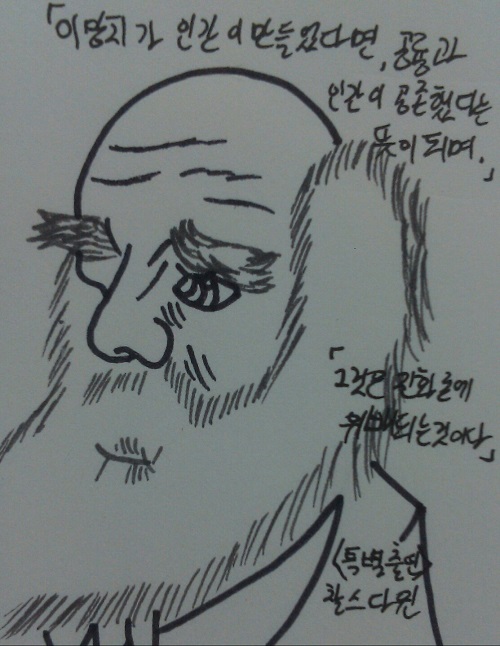 「이망치가 인간이 만들었다면, 공룡과
인간이 공존했다는
뜻이 되며,」
「그것은 진화론에
위배되는것이다」
<특별출연>
찰스다윈